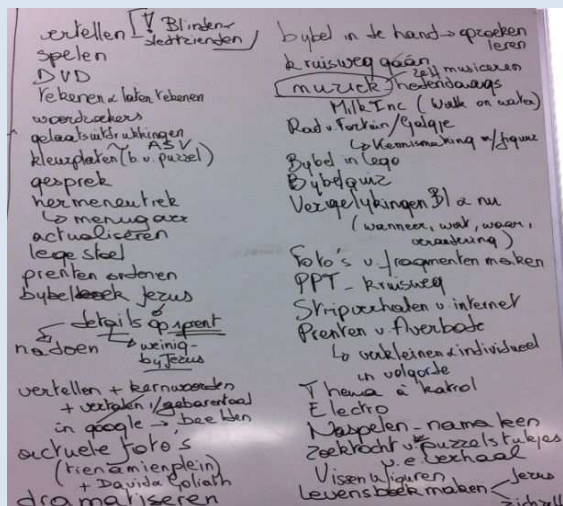 vertellen - ! Blinden-
slechtzienden
spelen
DVD
rekenen & laten rekenen
woordzoekers
gelaatsuitdrukkingen
kleurplaten (b.v. puzzel)
ASV
gesprek
hermeneutiek
↳ menugaar
actualiseren
lege stoel
prenten ordenen
bijbelboek Jezus
details op prent
nadoen
weinig
by Jezus
vertellen + kernwoorden
+ vertalen i/gebarentaal
in google → beelden
actuele foto's
(Tienamienplein)
+ David & Goliath
dramatiseren
bybel in de hand → opzoeken
leren
kruisweg gaan
muziek
zelf musiceren
hedendaags
Milk Inc (Walk on water)
Rad v. Fortuin/Galgje
↳ Kennismaking m/figuur
Bybel in Lego
Bybelquiz
Vergelykingen Bl & nu
(wanneer, wat, waar,
verandering)
Foto's v. fragmenten maken
PPT - kruisweg
Stripverhalen v internet
Prenten v. Averbode
↳ verkleinen & individueel
in volgorde
Thema à katrol
Electro
Naspelen - namaken
Zoektocht v. puzzelstukjes
v. e. verhaal
Vissen v/figuren
Levensboek maken
Jezus
zichzelf